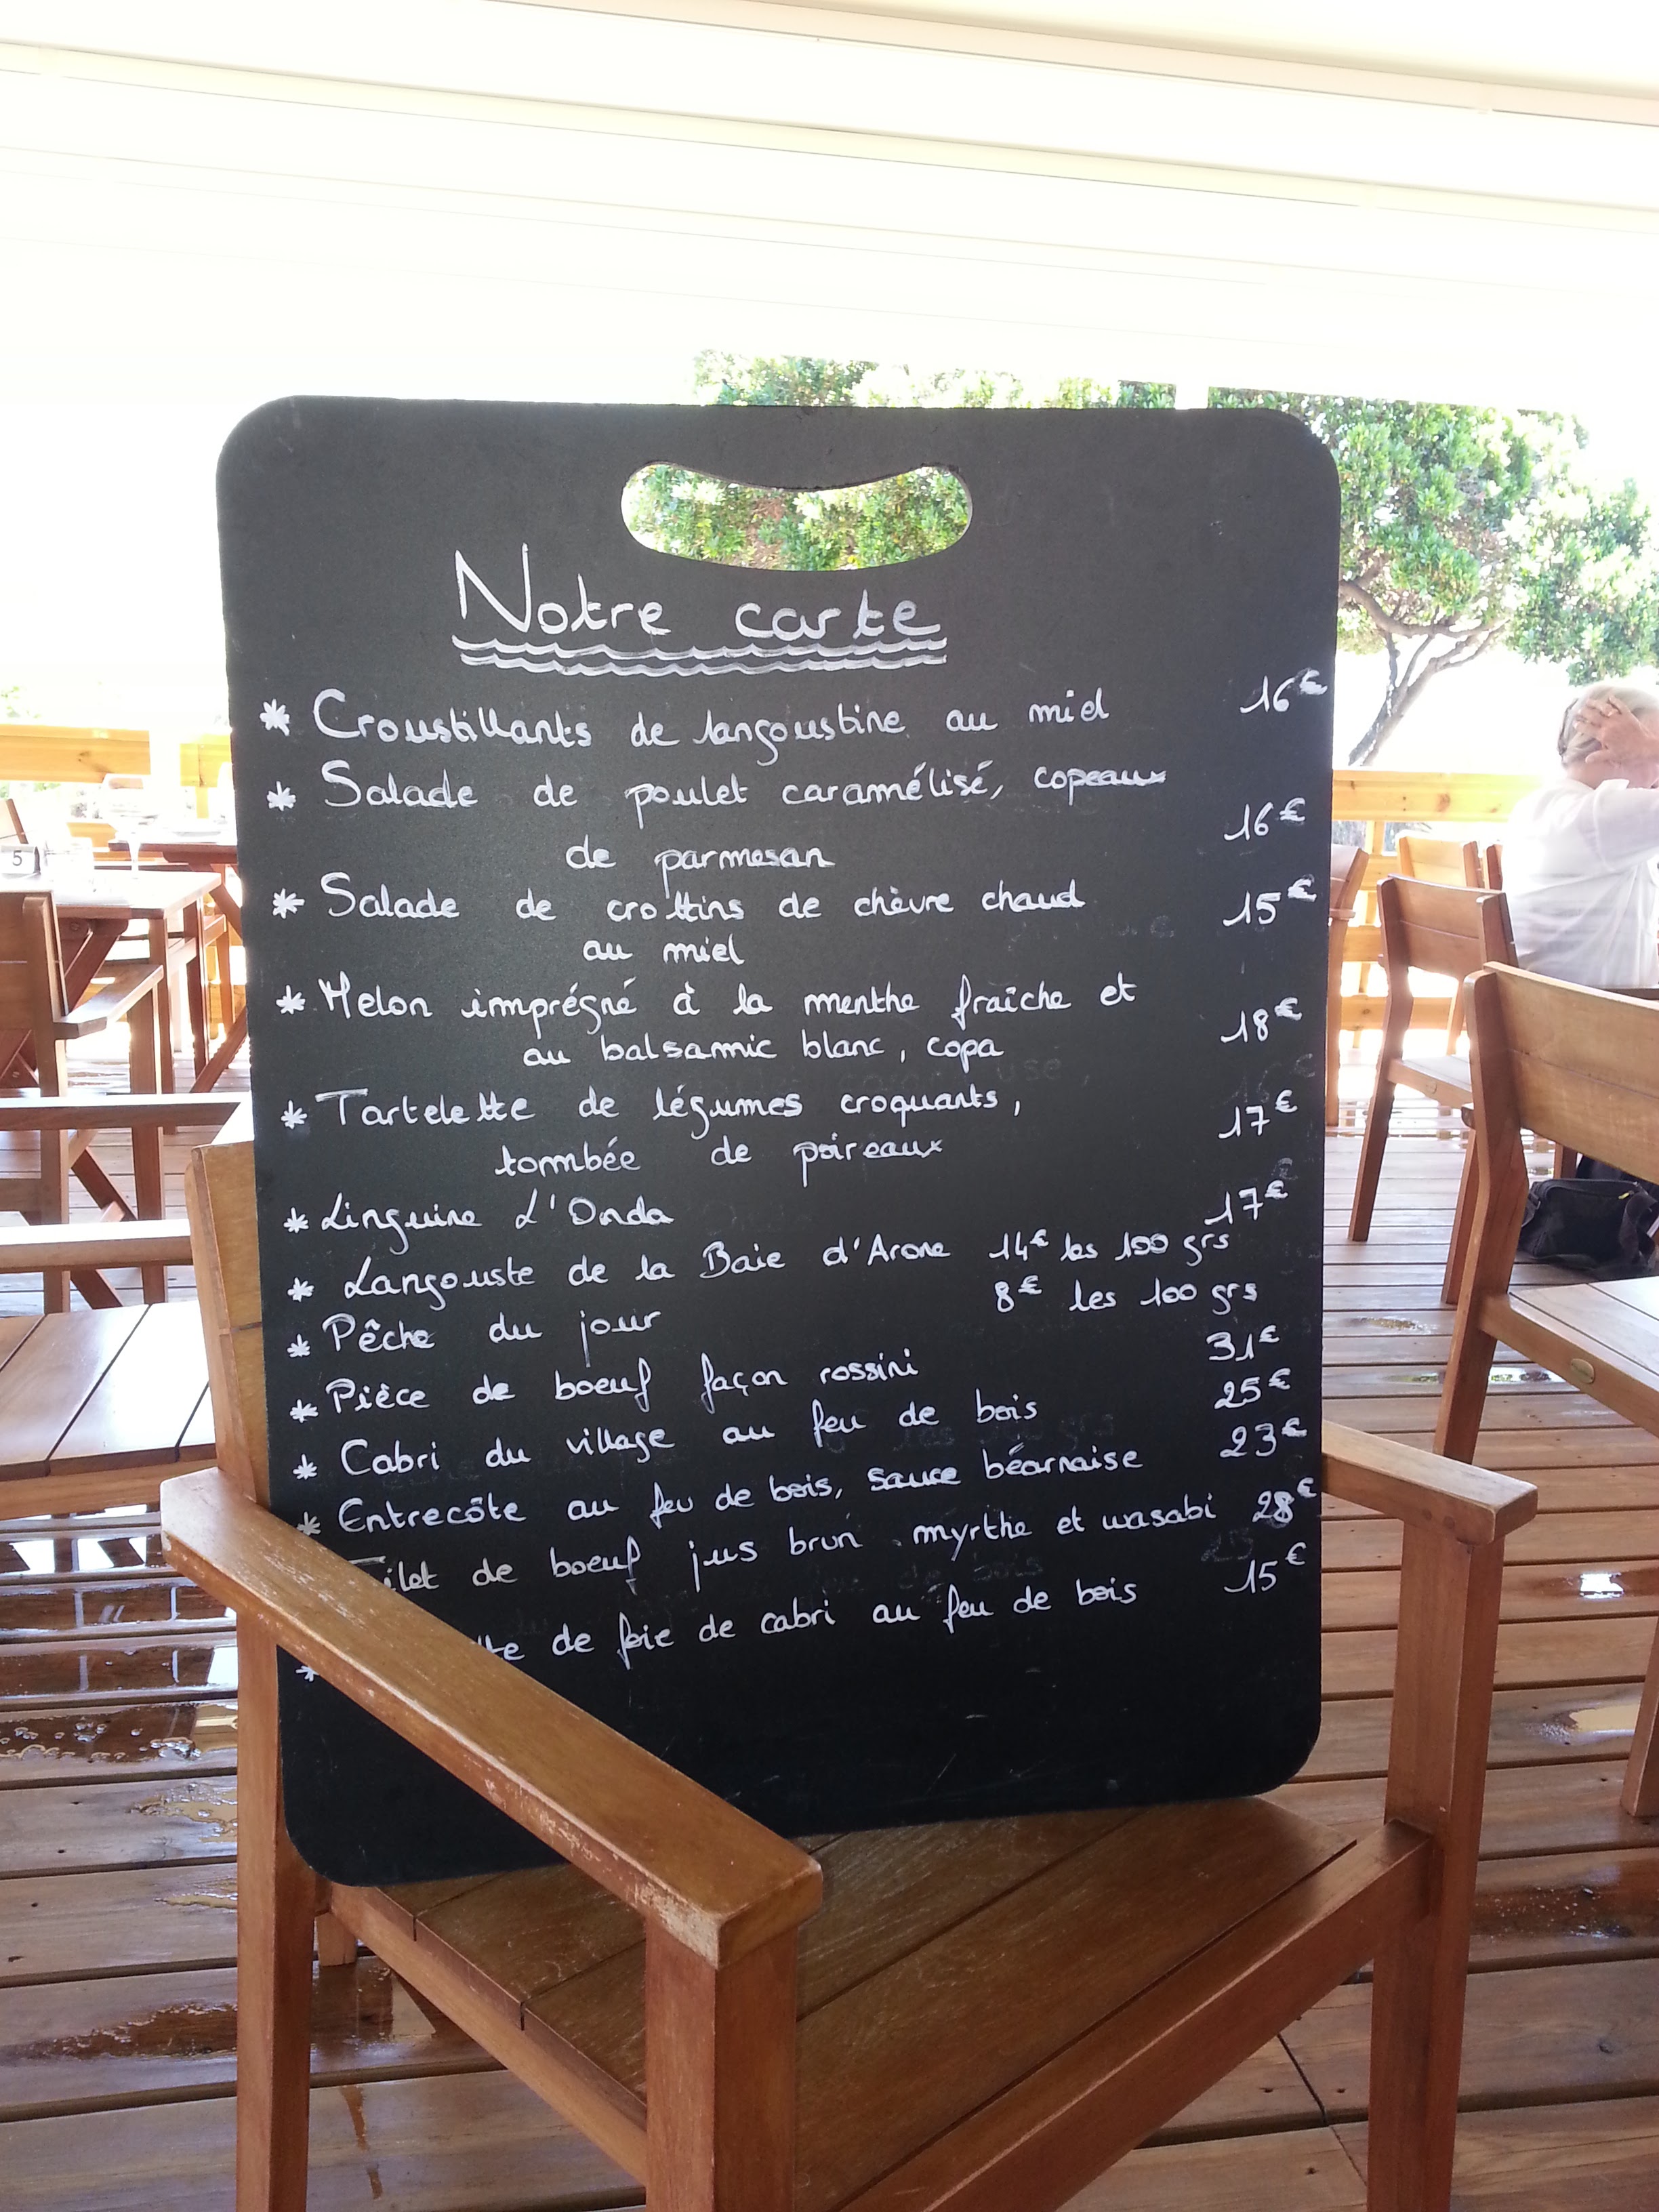 5
Notre carte
* Croustillants de langoustine au miel 16€
* Salade de poulet caramélisé, copeaux
de parmesan 16€
* Salade de crottins de chèvre chaud 15€
au miel
* Melon imprégné à la menthe fraîche et
au balsamic blanc, copa 18€
* Tartelette de légumes croquants, 17€
tombée de poireaux
* Linguine L'Onda 17€
* Langouste de la Baie d'Arone 14€ les 100 grs
* Pêche du jour 8€ les 100 grs
* Pièce de boeuf façon rossini 31€
* Cabri du village au feu de bois 25€
* Entrecôte au feu de bois, sauce béarnaise 23€
Filet de boeuf jus brun myrthe et wasabi 28€
* de foie de cabri au feu de bois 15€